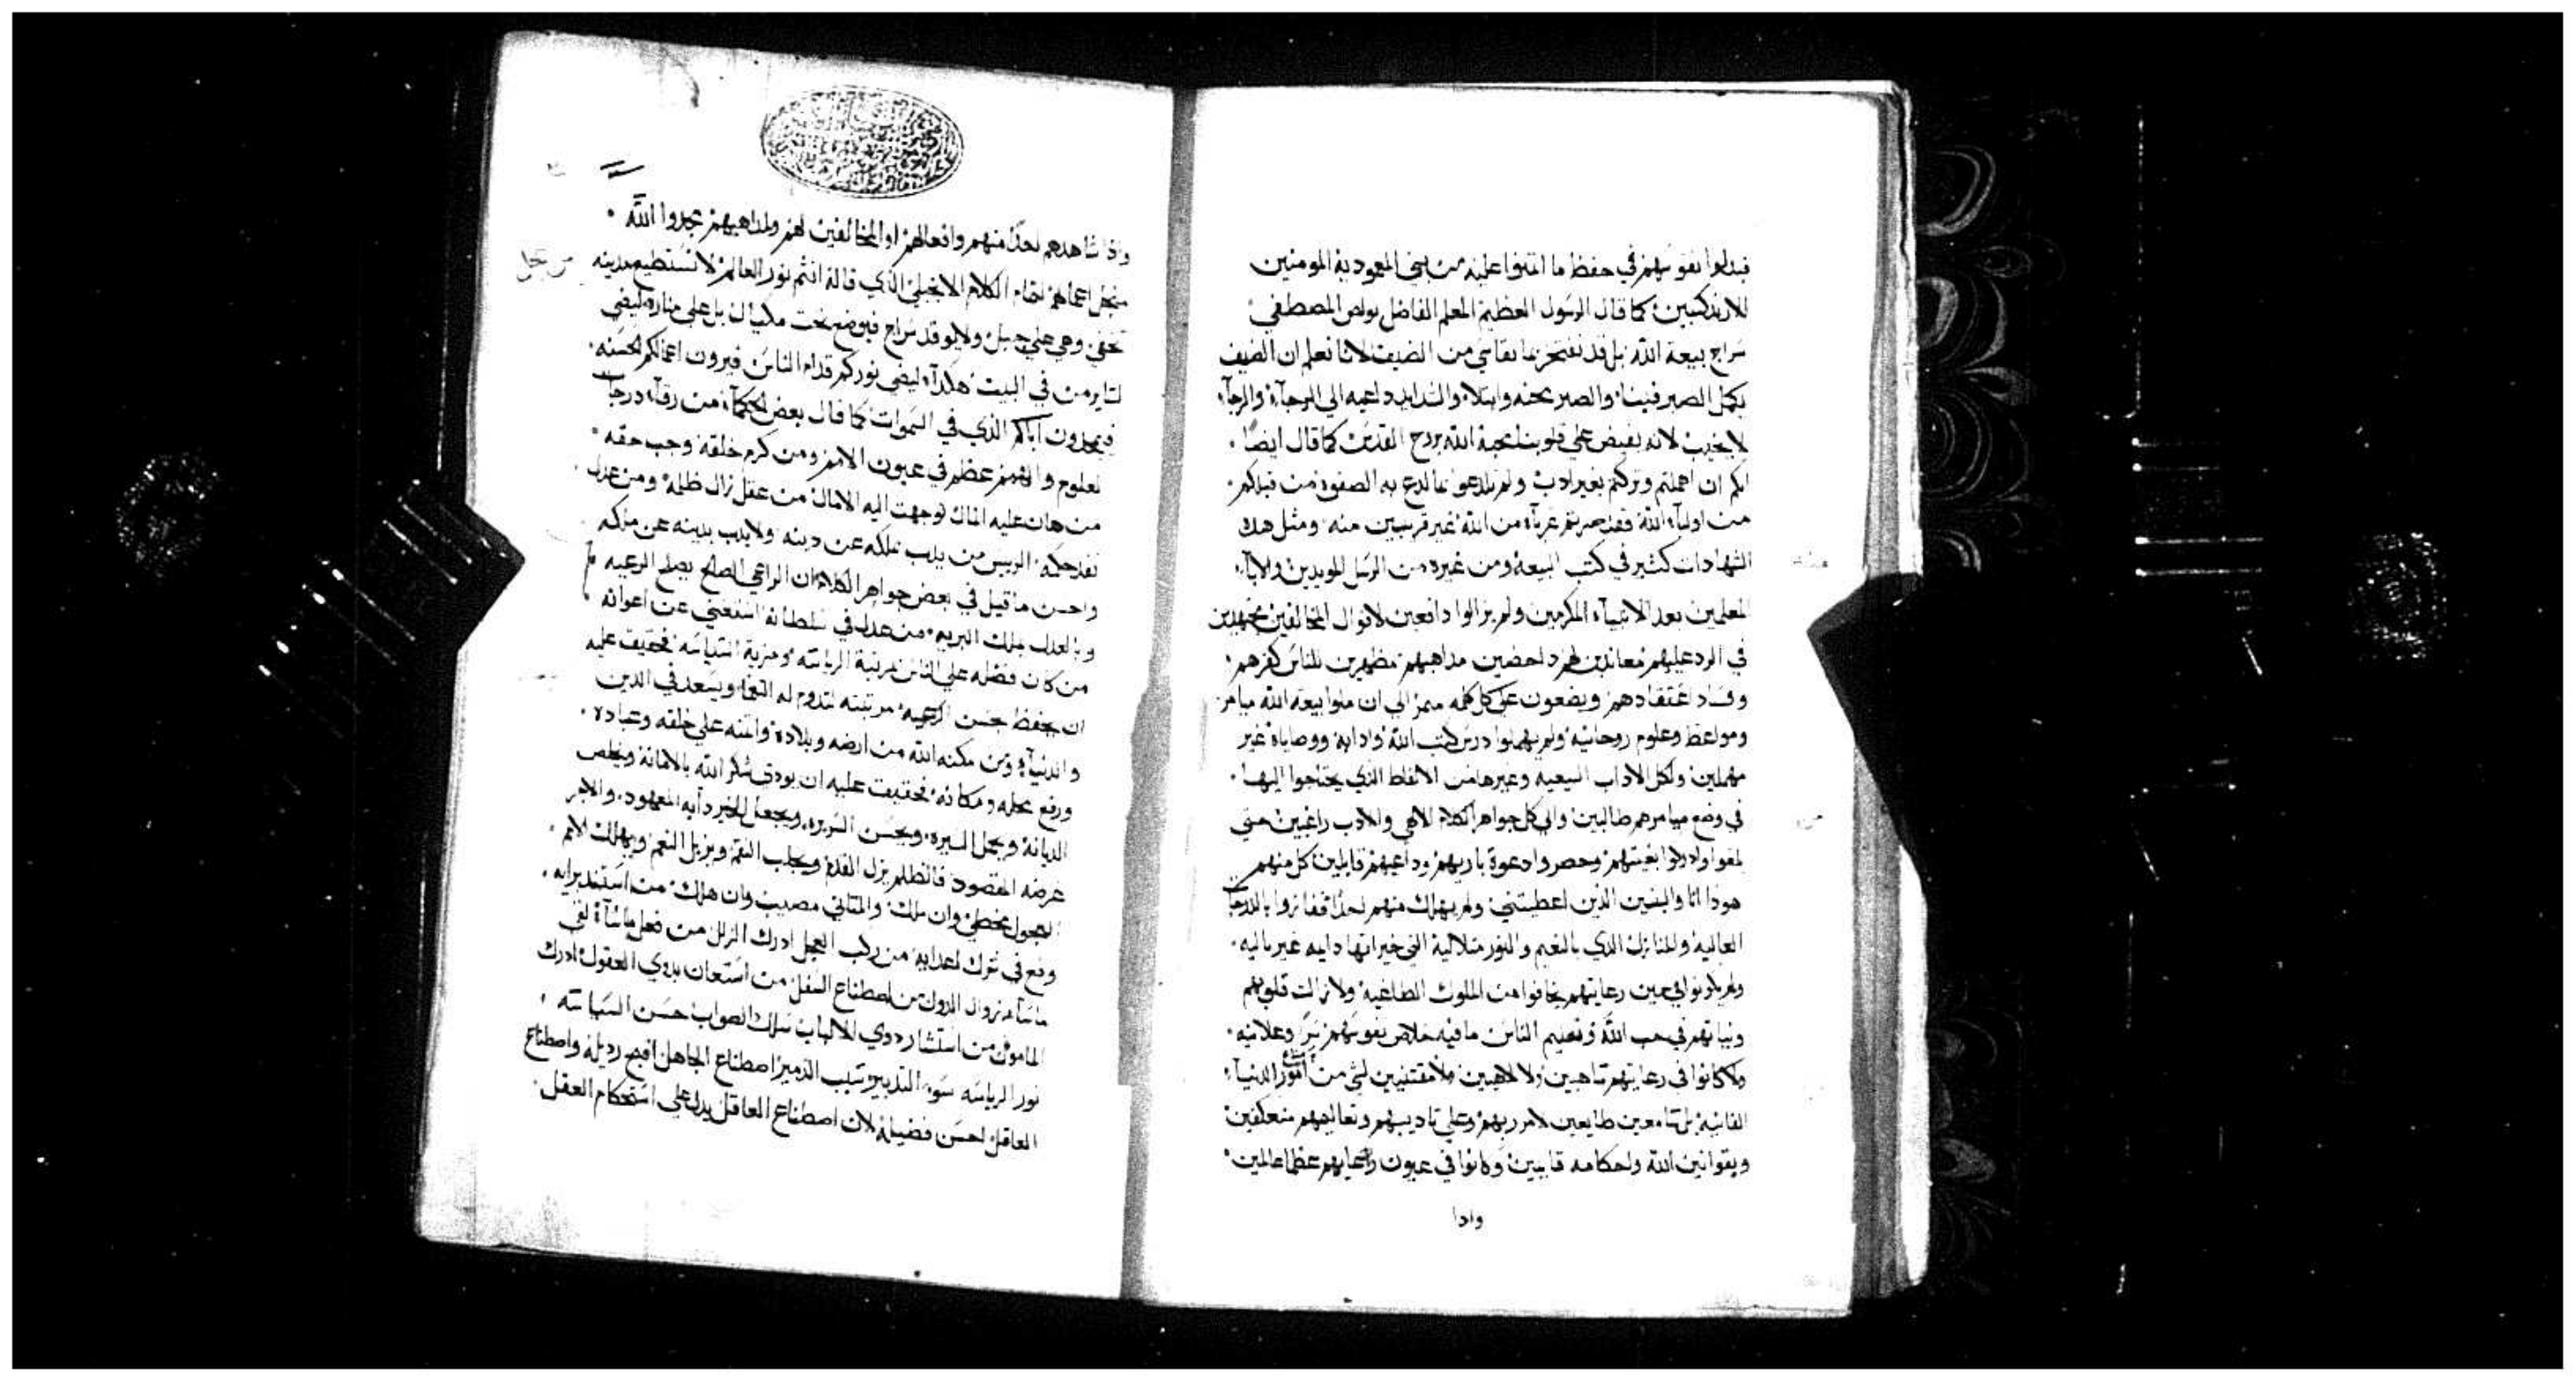 فبدلوا نفوسهم في حفظ ما ائتمنوا عليه من بني المعمودية المومنين
الارتدكسيين كما قال الرسول العظيم المعلم الفاضل بولص المصطفي
سراج بيعة الله بل قد نفتخر بما نقاسي من الضيف لاننا نعلم ان الضيف
يكمل الصبر فينا والصبر محنه وابتلاء والشدايد داعيه الي الرجآء والرجآء
لا يخيب لانه يفيض علي قلوبنا محبة الله بروح القدس كما قال ايضا
انكم ان اهملتم وتركتم بغير ادب ولم تلدعوا بما لدع به الصفوة من قبلكم
من اوليآء الله فقد صرتم غربآء من الله غير قريبين منه ومثل هذه
الشهادات كثير في كتب البيعة ومن غيره من الرسل المويدين والابآء
المعلمين بعد الانبيآء المكرمين ولم يزالوا دافعين لاقوال المخالفين مجتهدين
في الرد عليهم معاندين لهم داحضين مذاهبهم مظهرين للناس كفرهم
وفساد اعتقادهم ويضعون علي كل كلمه ميمر الي ان ملوا بيعة الله ميامر
ومواعظ وعلوم روحانيه ولم يهملوا درس كتب الله وادابه ووصاياه غير
مهملين ولكل الاداب البيعيه وغيرها من الالفاظ الذي يحتاجوا اليها
في وضع ميامرهم طالبين والي كل جواهر الكلام الالهي والادب راغبين حتي
بلغوا وادركوا بغيتهم وحصروا دعوة باريهم وداعيهم قايلين كل منهم
هوذا انا والبنين الذين اعطيتني ولم يهلك منهم احدا ففازوا بالدرجات
العاليه والمنازل الذي بالنعيم والنور متلالية التي خيراتها دايمه غير باليه
ولم يكونوا في حين رعايتهم يخافوا من الملوك الطاغيه ولا زالت قلوبهم
ونياتهم في حب الله وتعليم الناس ما فيه خلاص نفوسهم سرا وعلانيه
ولا كانوا في رعايتهم ساهيين ولا لاهيين ولا مقتنيين لشي من امور الدنيآء
الفانيه بل سامعين طايعين لامر ربهم وعلي تاديبهم وتعاليمهم منعكفين
وبقوانين الله واحكامه قايمين وكانوا في عيون رعاياهم عظما عالمين
واذا
واذا شاهدهم احدا منهم وافعالهم او المخالفين لهم ولمذاهبهم مجدوا الله
من اجل اعمالهم لتمام الكلام الانجيلي الذي قاله انتم نور العالم لا تستطيع مدينه
تخفي وهي علي جبل ولا يوقد سراج فيوضع تحت مكيال بل علي مناره ليضي
لساير من في البيت هكذآ ليضي نوركم قدام الناس فيرون اعمالكم الحسنه
فيمجدون اباكم الذي في السموات كما قال بعض الحكمآء من رقآء درجات
العلوم والفهم عظم في عيون الامم ومن كرم خلقه وجب حقه
من هان عليه المال توجهت اليه الامال من عقل زال ظلمه ومن عدل
نفذ حكمه الرييس من يدب بملكه عن دينه ولا يدب بدينه عن ملكه
واحسن ما قيل في بعض جواهر الكلام ان الراعي الصالح يصلح الرعيه
وبالعدل يملك البريه من عدل في سلطانه استغني عن اعوانه
من كان فضله علي الناس بمرتبة الرياسه ومزية السياسه فحقيق عليه
ان يحفظ حسن الرعيه مرتبته لتدوم له النعما ويسعد في الدين
والدنيآء ومن مكنه الله من ارضه وبلاده وائتمنه علي خلقه وعباده
ورفع محله ومكانه فحقيق عليه ان يودي شكر الله بالامانة ويخلص
الديانة ويجمل السيره ويحسن السريره ويجعل الخير دأبه المعهود والاجر
غرضه المقصود فالظلم يزل القدم ويجلب النقم ويزيل النعم ويهلك الامم
العجول مخطي وان ملك والمتاني مصيب وان هلك من استبد برايه
وقع في شرك اعدايه من ركب العجل ادرك الزلل من فعل ماشآء لقي
ماسآء زوال الدول من اصطناع السفل من استعان بدوي العقول ادرك
المامول من استشار دوي الالباب سلك الصواب حسن السياسه
نور الرياسه سوء التدبير سبب التدمير اصطناع الجاهل اقبح رديلة واصطناع
العاقل احسن فضيلة لان اصطناع العاقل يدل علي استحكام العقل